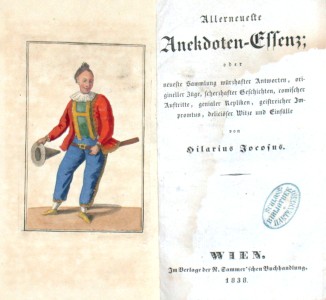 Allerneueste
Anekdoten-Essenz;
oder
neueste Sammlung würzhafter Antworten, ori-
gineller Züge, scherzhafter Geschichten, comischer
Auftritte, genialer Repliken, geistreicher Im-
promtus, deliciöser Witze und Einfälle
von
Hilarius Jocosus.
BIBLIOTHEK
WIEN.
Im Verlage der R. Sammer'schen Buchhandlung.
1838.